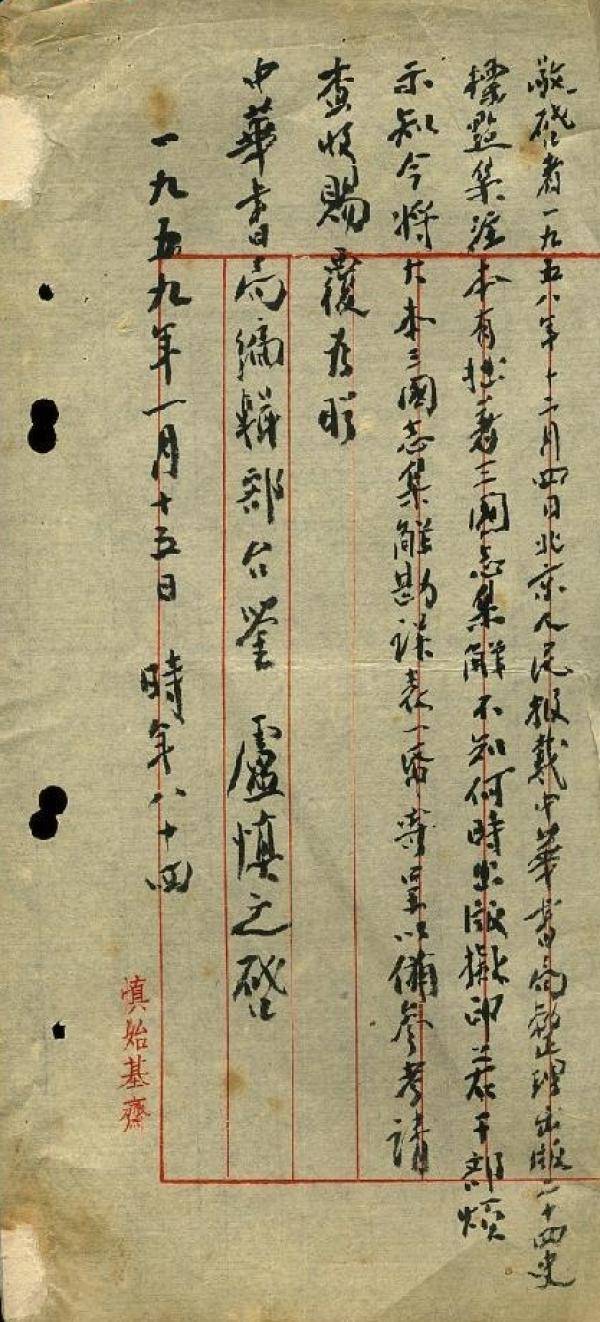 敬啓者一九五八年十二月四日北京人民報載中華書局整理出版二十四史
標點集注本有拙著三國志集解不知何時出版擬印若干部煩
示知今將古本三國志集解勘誤表一份寄呈以備參考請
查收賜覆為盼
中華書局編輯部台鑒 盧慎之啓
一九五九年一月十五日 時年八十四
慎始基齋